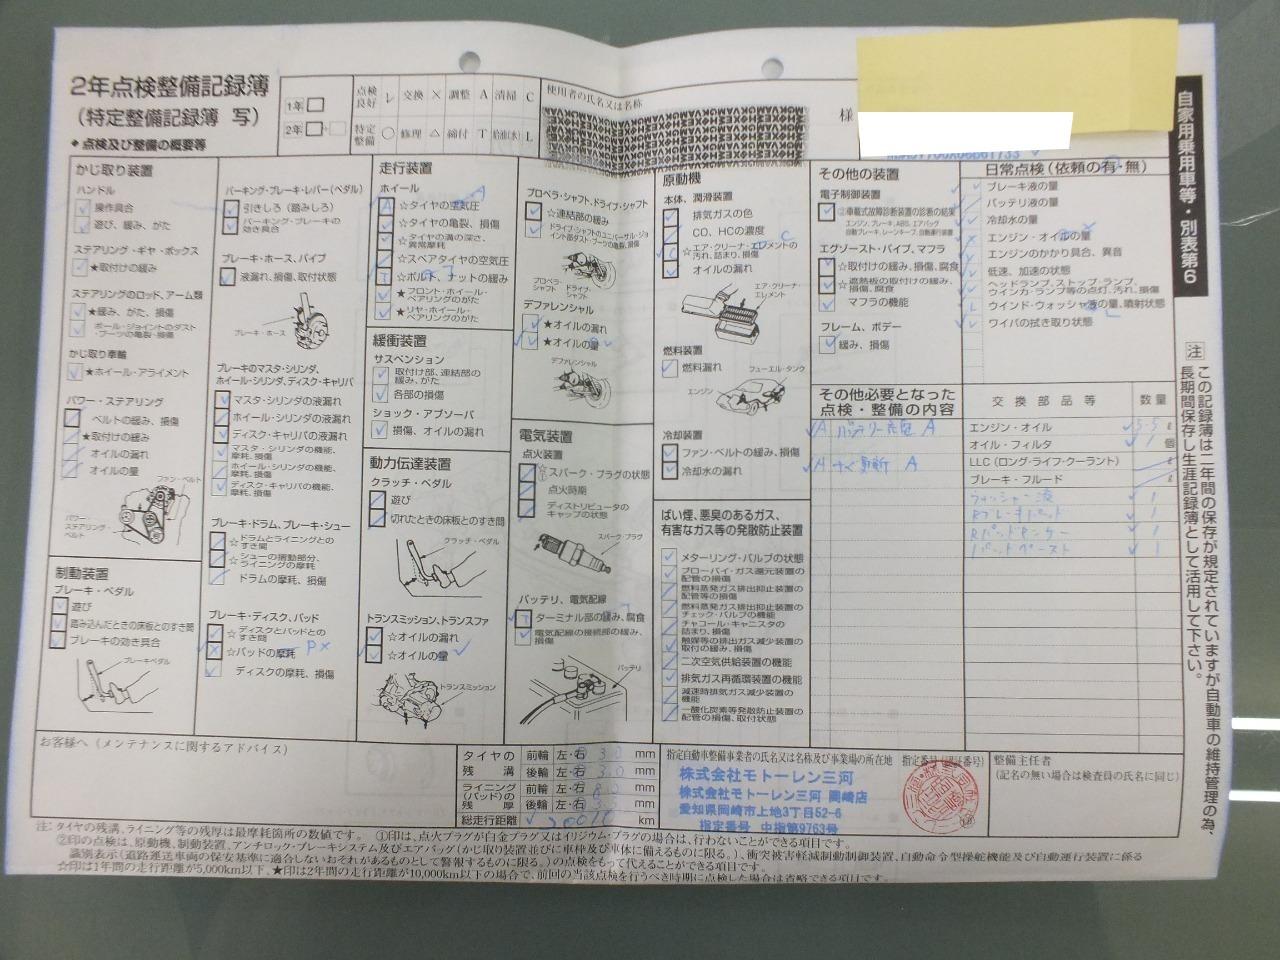 2年点検整備記録簿
(特定整備記録簿 写)
◆ 点検及び整備の概要等
1年
2年
点検良好 レ 交換 × 調整 A 清掃 C
特定整備 ○ 修理 △ 締付 T 給油(水) L
使用者の氏名又は名称
様
自家用乗用車等・別表第6
かじ取り装置
ハンドル
操作具合
遊び、緩み、がた
ステアリング・ギヤ・ボックス
★取付けの緩み
ステアリングのロッド、アーム類
★緩み、がた、損傷
ボール・ジョイントのダスト・ブーツの亀裂・損傷
かじ取り車輪
★ホイール・アライメント
パワー・ステアリング
ベルトの緩み、損傷
★取付けの緩み
オイルの漏れ
オイルの量
ファン・ベルト
パワー・ステアリング・ベルト
制動装置
ブレーキ・ペダル
遊び
踏み込んだときの床板とのすき間
ブレーキの効き具合
ブレーキペダル
パーキング・ブレーキ・レバー(ペダル)
引きしろ(踏みしろ)
パーキング・ブレーキの効き具合
ブレーキ・ホース、パイプ
液漏れ、損傷、取付状態
ブレーキ・ホース
ブレーキのマスタ・シリンダ、
ホイール・シリンダ、ディスク・キャリパ
マスタ・シリンダの液漏れ
ホイール・シリンダの液漏れ
ディスク・キャリパの液漏れ
マスタ・シリンダの機能、摩耗、損傷
ホイール・シリンダの機能、摩耗、損傷
ディスク・キャリパの機能、摩耗、損傷
ブレーキ・ドラム、ブレーキ・シュー
☆ドラムとライニングとのすき間
☆シューの摺動部分、ライニングの摩耗
ドラムの摩耗、損傷
ブレーキ・ディスク、パッド
☆ディスクとパッドとのすき間
☆パッドの摩耗
ディスクの摩耗、損傷
走行装置
ホイール
☆タイヤの空気圧
☆タイヤの亀裂、損傷
☆タイヤの溝の深さ、異常摩耗
☆スペアタイヤの空気圧
☆ボルト、ナットの緩み
★フロント・ホイール・ベアリングのがた
★リヤ・ホイール・ベアリングのがた
緩衝装置
サスペンション
取付け部、連結部の緩み、がた
各部の損傷
ショック・アブソーバ
損傷、オイルの漏れ
動力伝達装置
クラッチ・ペダル
遊び
切れたときの床板とのすき間
クラッチ・ペダル
トランスミッション、トランスファ
☆オイルの漏れ
☆オイルの量
トランスミッション
プロペラ・シャフト、ドライブ・シャフト
☆連結部の緩み
ドライブ・シャフトのユニバーサル・ジョイント部ダスト・ブーツの亀裂、損傷
プロペラ・シャフト
ドライブ・シャフト
デファレンシャル
★オイルの漏れ
★オイルの量
デファレンシャル
電気装置
点火装置
スパーク・プラグの状態
点火時期
ディストリビュータのキャップの状態
スパーク・プラグ
バッテリ、電気配線
ターミナル部の緩み、腐食
電気配線の接続部の緩み、損傷
バッテリ
原動機
本体、潤滑装置
排気ガスの色
CO、HCの濃度
☆エア・クリーナ・エレメントの汚れ、詰まり、損傷
オイルの漏れ
エア・クリーナ・エレメント
燃料装置
燃料漏れ
フューエル・タンク
エンジン
冷却装置
ファン・ベルトの緩み、損傷
冷却水の漏れ
ばい煙、悪臭のあるガス、
有害なガス等の発散防止装置
メターリング・バルブの状態
ブローバイ・ガス還元装置の配管の損傷
燃料蒸発ガス排出抑止装置の配管等の損傷
燃料蒸発ガス排出抑止装置のチェック・バルブの機能
チャコール・キャニスタの詰まり、損傷
触媒等の排出ガス減少装置の取付の緩み、損傷
二次空気供給装置の機能
排気ガス再循環装置の機能
減速時排気ガス減少装置の機能
一酸化炭素等発散防止装置の配管の損傷、取付状態
その他の装置
電子制御装置
②車載式故障診断装置の診断の結果
エンジン、ブレーキ、ABS、エアバッグ
自動ブレーキ、レーンキープ、自動運行装置
エグゾースト・パイプ、マフラ
☆取付けの緩み、損傷、腐食
☆遮熱板の取付けの緩み、損傷、腐食
マフラの機能
フレーム、ボデー
緩み、損傷
その他必要となった
点検・整備の内容
A バッテリー充電 A
日常点検(依頼の有・無)
ブレーキ液の量
バッテリ液の量
冷却水の量
エンジン・オイルの量
エンジンのかかり具合、異音
低速、加速の状態
ヘッドランプ、ストップ、ランプ、ウインカ・ランプ等の点灯、汚れ、損傷
ウインド・ウォッシャ液の量、噴射状態
ワイパの拭き取り状態
交換部品等 数量
エンジン・オイル 5.5 ℓ
オイル・フィルタ 1 個
LLC(ロング・ライフ・クーラント) ℓ
ブレーキ・フルード ℓ
ウォッシャー液 1
Rブレーキパッド 1
Rパッドセンサー 1
パッドペースト 1
注 この記録簿は二年間の保存が規定されていますが自動車の維持管理の為、
長期間保存し生涯記録簿として活用して下さい。
お客様へ (メンテナンスに関するアドバイス)
タイヤの残溝 前輪 左・右 mm
後輪 左・右 mm
ライニング(パッド)の残厚 前輪 左・右 mm
後輪 左・右 mm
総走行距離 km
指定自動車整備事業者の氏名又は名称及び事業場の所在地 指定番号(認証番号)
株式会社モトーレン三河
株式会社モトーレン三河 岡崎店
愛知県岡崎市上地3丁目52-6
指定番号 中指第9763号
整備主任者
(記名の無い場合は検査員の氏名に同じ)
注: タイヤの残溝、ライニング等の残厚は最摩耗箇所の数値です。 ①印は、点火プラグが白金プラグ又はイリジウム・プラグの場合は、行わないことができる項目です。
②印の点検は、原動機、制動装置、アンチロック・ブレーキシステム及びエアバッグ(かじ取り装置並びに車枠及び車体に備えるものに限る。)、衝突被害軽減制動制御装置、自動命令型操舵機能及び自動運行装置に係る
識別表示(道路運送車両の保安基準に適合しないおそれがあるものとして警報するものに限る。)の点検をもって代えることができる項目です。
☆印は1年間の走行距離が5,000km以下、★印は2年間の走行距離が10,000km以下の場合で、前回の当該点検を行うべき時期に点検した場合は省略できる項目です。